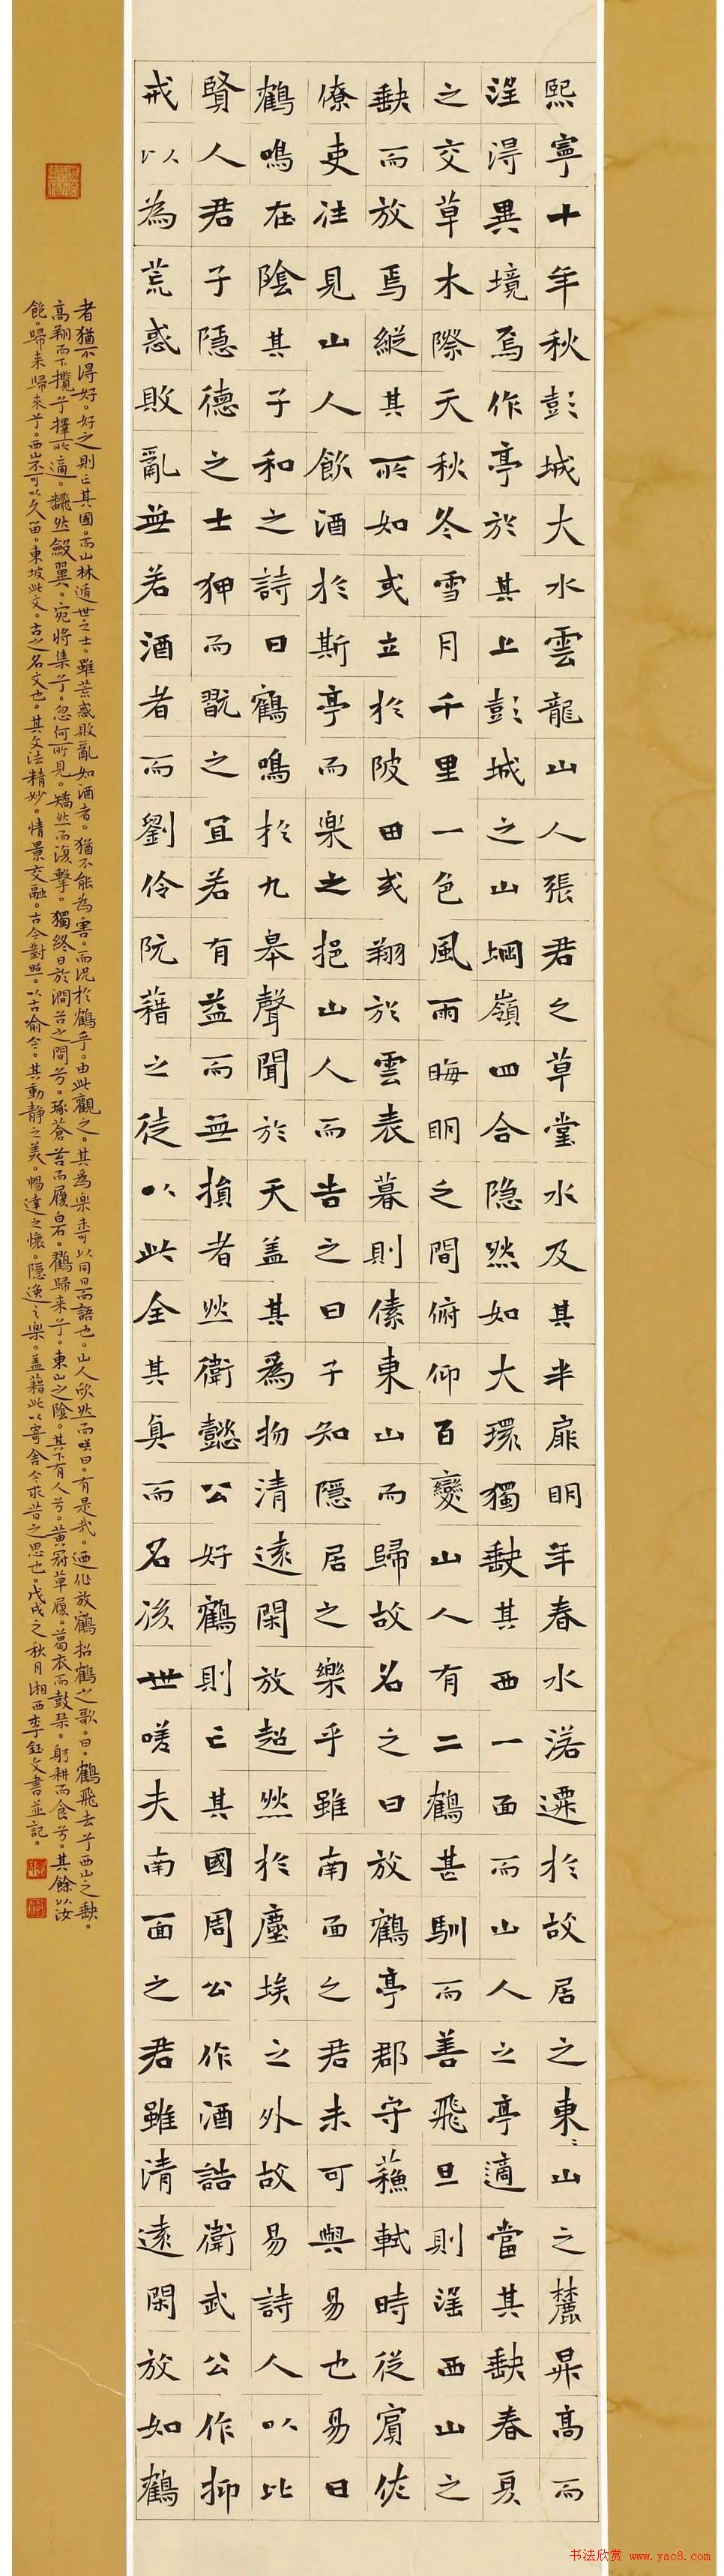 熙寧十年秋彭城大水雲龍山人張君之草堂水及其半扉眀年春水落遷於故居之東〻山之麓昇高而
望得異境焉作亭於其上彭城之山堈嶺四合隐然如大環獨缺其西一面而山人之亭適當其缺春夏
之交草木際天秋冬雪月千里一色風雨晦眀之間俯仰百變山人有二鶴甚馴而善飛旦則望西山之
缺而放焉縱其所如或立於陂田或翔於雲表暮則傃東山而歸故名之曰放鶴亭郡守蘇軾時從賓佐
僚吏往見山人飲酒於斯亭而樂之挹山人而告之曰子知隱居之樂乎雖南面之君未可與易也易曰
鶴鳴在陰其子和之詩曰鶴鳴於九皋聲聞於天蓋其為物清遠閑放超然於塵埃之外故易詩人以比
賢人君子隱德之士狎而翫之宜若有益而無損者然衛懿公好鶴則亡其國周公作酒誥衛武公作抑
戒以為荒惑敗亂無若酒者而劉伶阮藉之徒以此全其真而名後世嗟夫南面之君雖清遠閑放如鶴
者猶不得好。好之則亡其國。而山林遁世之士。雖荒惑敗亂如酒者。猶不能為害。而況於鶴乎。由此觀之。其為樂未可以同日而語也。山人欣然而咲曰。有是哉。迺作放鶴招鶴之歌。曰。鶴飛去兮西山之缺。
高翔而下攬兮擇所適。翻然斂翼。宛將集兮。忽何所見。矯然而復擊。獨終日於澗谷之間兮。琢蒼苔而履白石。鶴歸来兮。東山之陰。其下有人兮。黄冠草履。葛衣而鼓琴。躬耕而食兮。其餘以汝
飽。歸来歸来兮。西山不可以久留。東坡此文。古之名文也。其文法精妙。情景交融。古今對照。以古喻今。其動静之美。暢達之懷。隱逸之樂。盖藉此以寄舍今求昔之思也。戊戌之秋月湘西李鈺文書並記。
书法欣赏 www.yac8.com